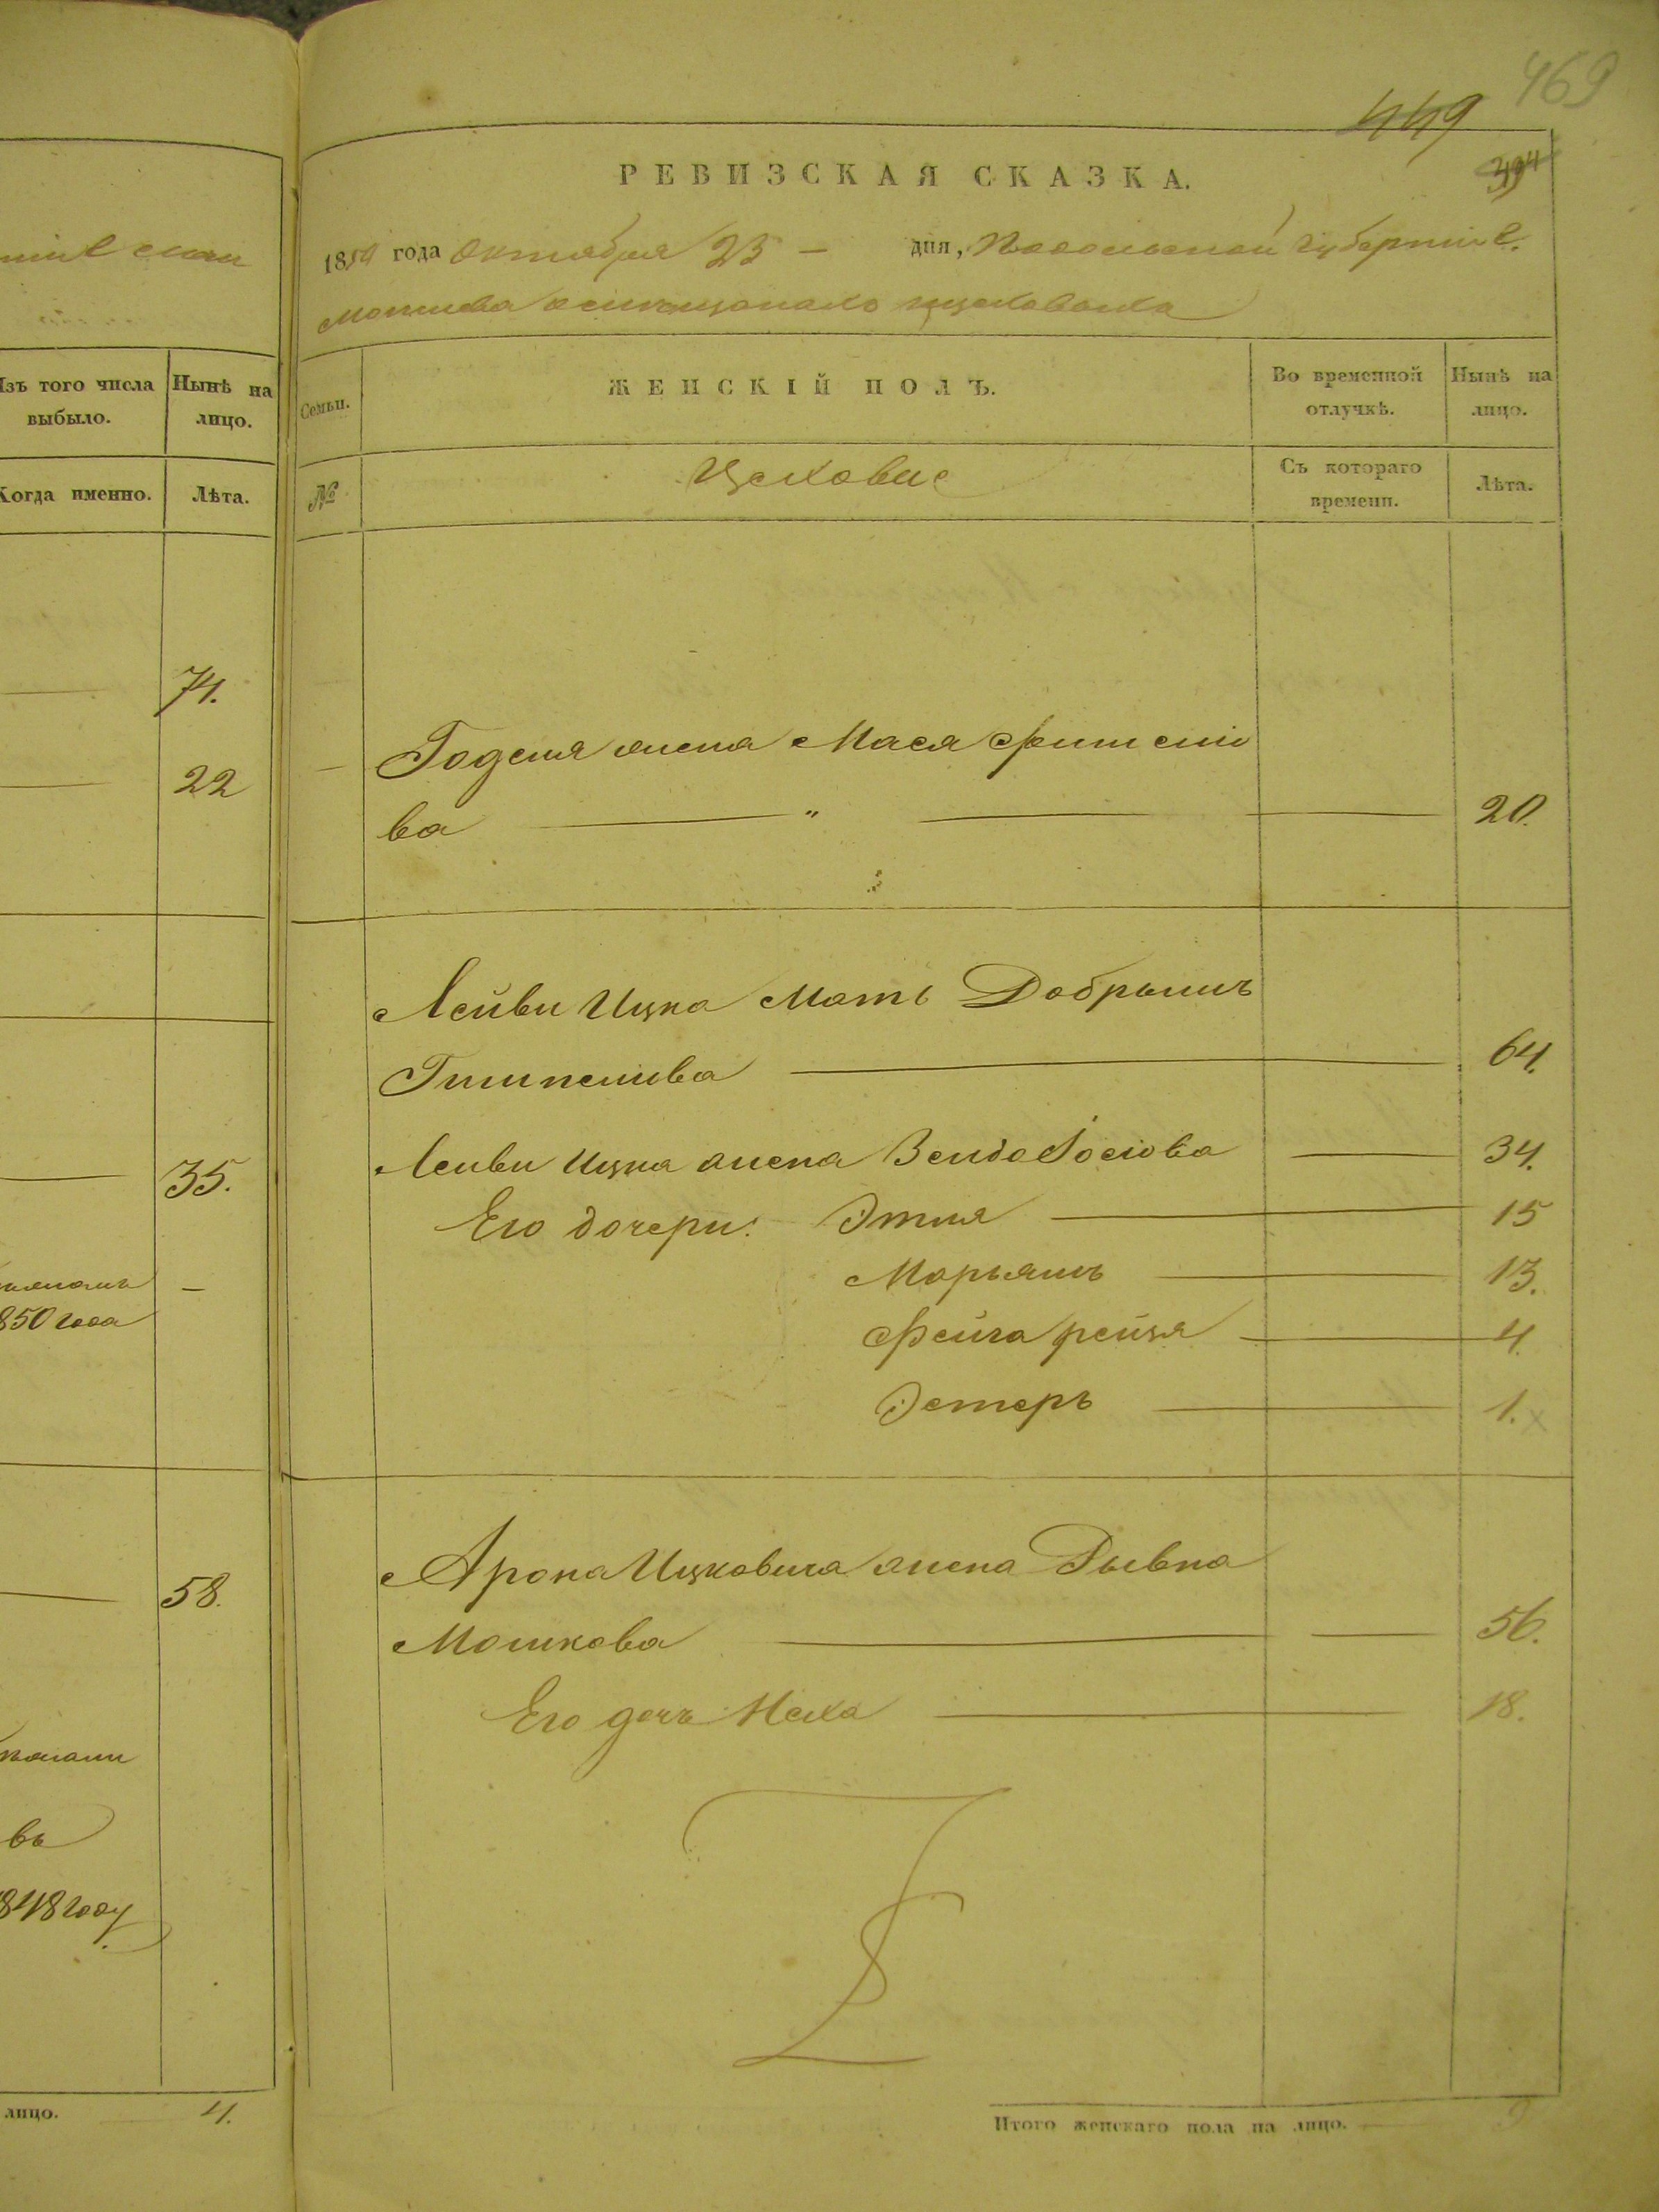 469
449
394
РЕВИЗСКАЯ СКАЗКА.
1850 года Октября 23 — дня, Подольской губерніи
Могилева
Изъ того числа выбыло.
Нынѣ на лицо.
Когда именно.
Лѣта.
74.
22
35.
850 года
58.
въ
1848 году
лицо. 4.
Семьи.
ЖЕНСКІЙ ПОЛЪ.
Во временной отлучкѣ.
Нынѣ на лицо.
№
Цеховые
Съ котораго времени.
Лѣта.
жена Мася
ва — " — 20.
Лейви Ицка Мать Добрышъ
— 64.
Лейви Ицка жена Іосіова — 34.
Его дочери: Этля — 15
Марьямъ — 13.
Фейга рейзя — 4.
Эстеръ — 1.
Арона Ицковича жена Рывка
Мошкова — 56.
Его дочь Неха — 18.
Итого женскаго пола на лицо. 9